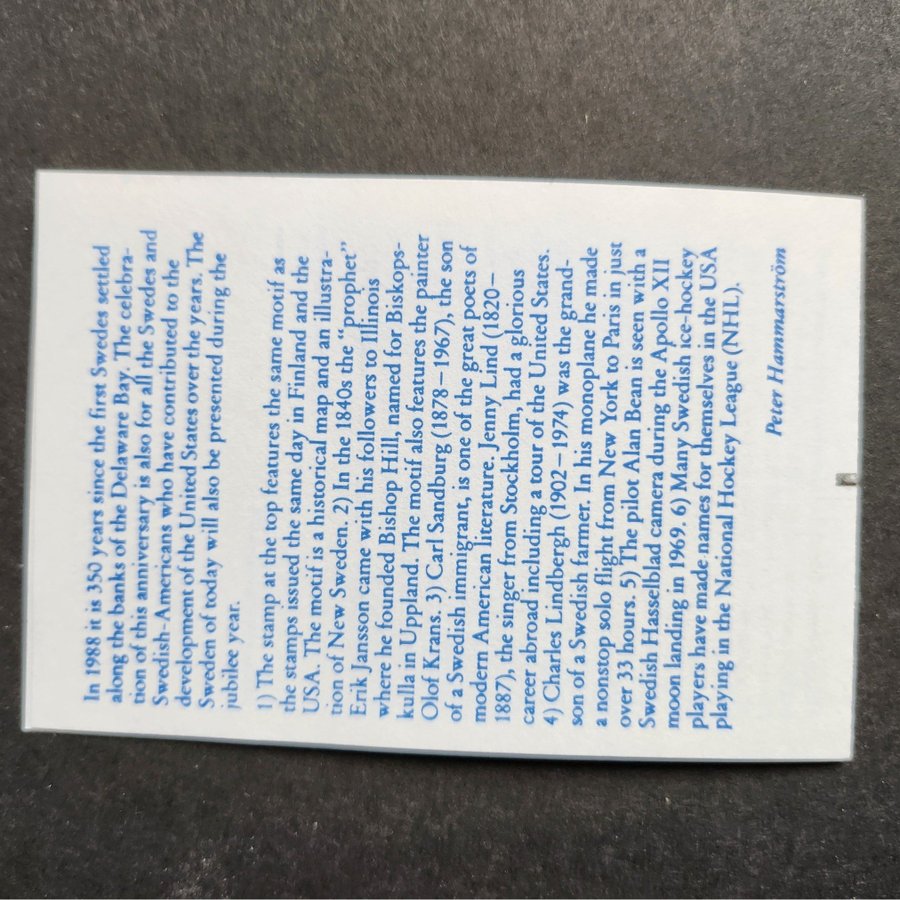 In 1988 it is 350 years since the first Swedes settled
along the banks of the Delaware Bay. The celebra-
tion of this anniversary is also for all the Swedes and
Swedish-Americans who have contributed to the
development of the United States over the years. The
Sweden of today will also be presented during the
jubilee year.
1) The stamp at the top features the same motif as
the stamps issued the same day in Finland and the
USA. The motif is a historical map and an illustra-
tion of New Sweden. 2) In the 1840s the “prophet”
Erik Jansson came with his followers to Illinois
where he founded Bishop Hill, named for Biskops-
kulla in Uppland. The motif also features the painter
Olof Krans. 3) Carl Sandburg (1878–1967), the son
of a Swedish immigrant, is one of the great poets of
modern American literature. Jenny Lind (1820–
1887), the singer from Stockholm, had a glorious
career abroad including a tour of the United States.
4) Charles Lindbergh (1902–1974) was the grand-
son of a Swedish farmer. In his monoplane he made
a nonstop solo flight from New York to Paris in just
over 33 hours. 5) The pilot Alan Bean is seen with a
Swedish Hasselblad camera during the Apollo XII
moon landing in 1969. 6) Many Swedish ice-hockey
players have made names for themselves in the USA
playing in the National Hockey League (NHL).
Peter Hammarström